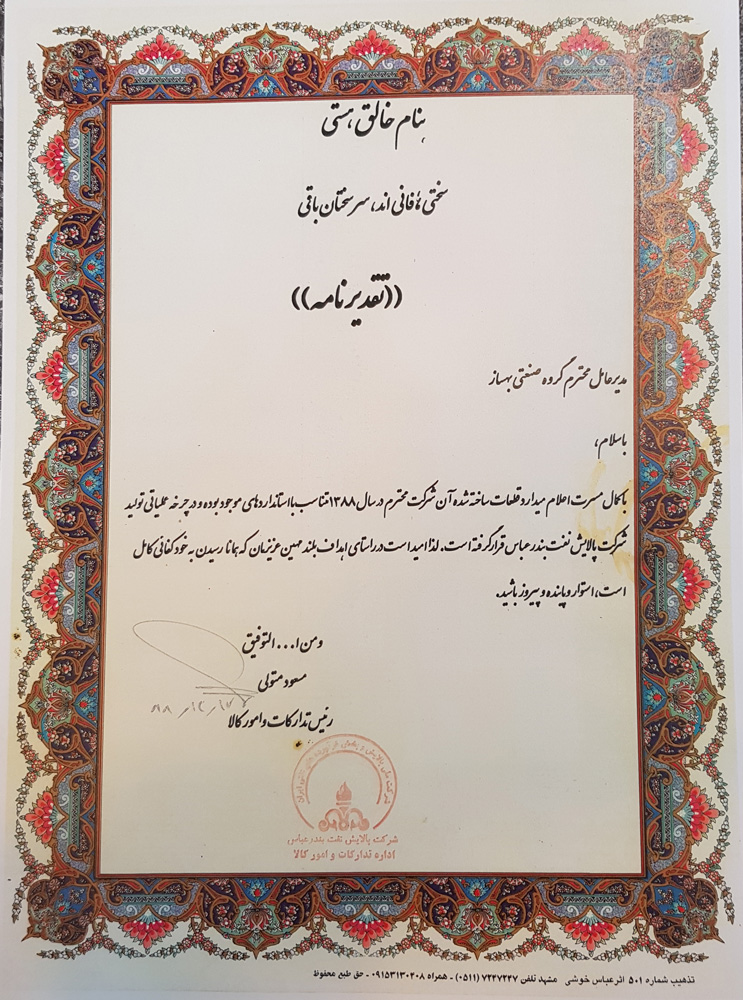 بنام خالق هستی
سختی ها فانی اند، سرسختان باقی
((تقدیرنامه))
مدیرعامل محترم گروه صنعتی بهساز
باسلام،
با کمال مسرت اعلام میدارد قطعات ساخته شده آن شرکت محترم در سال ۱۳۸۸ تناسب با استانداردهای موجود بوده و در چرخه عملیاتی تولید
شرکت پالایش نفت بندرعباس قرار گرفته است. لذا امید است در راستای اهداف بلند میهن عزیزمان که همانا رسیدن به خودکفائی کامل
است، استوار و پاینده و پیروز باشید.
ومن ا... التوفیق
مسعود متولی
رئیس تدارکات و امور کالا
شرکت ملی پالایش و پخش فرآورده های نفتی ایران
شرکت پالایش نفت بندرعباس
اداره تدارکات و امور کالا
تذهیب شماره ۵۰۱ اثر عباس خوشی مشهد تلفن ۷۲۴۷۲۴۷ (۰۵۱۱) - همراه ۰۹۱۵۳۱۳۰۲۰۸ - حق طبع محفوظ